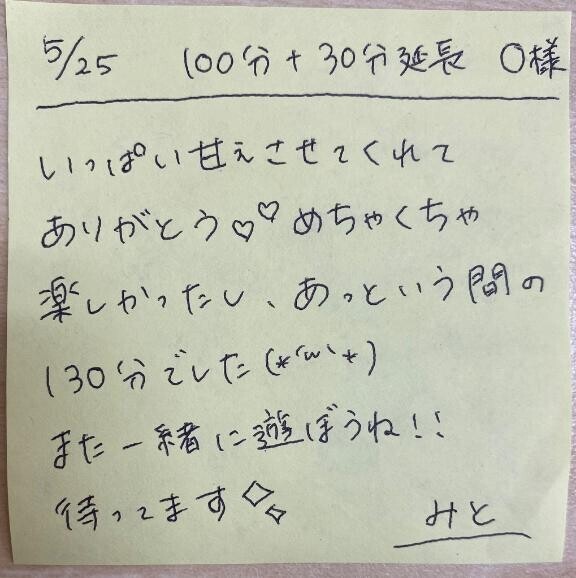 5/25 100分+30分延長 〇様
いっぱい甘えさせてくれて
ありがとう♡♡めちゃくちゃ
楽しかったし、あっという間の
130分でした(*´ω`*)
また一緒に遊ぼうね!!
待ってます✧✧
みと